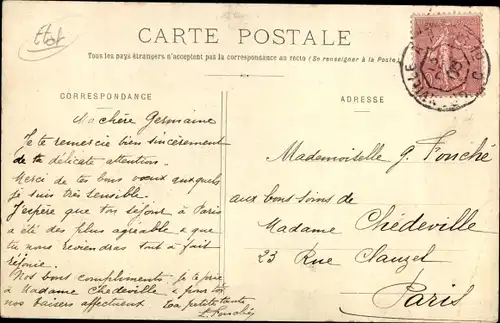 CARTE POSTALE
Tous les pays étrangers n'acceptent pas la correspondance au recto (Se renseigner à la Poste)
CORRESPONDANCE
Ma chère Germaine
Je te remercie bien sincèrement
de ta délicate attention.
Merci de tes bons voeux auxquels
je suis très sensible.
J'espère que ton séjour à Paris
a été des plus agréable & que
tu nous reviendras tout à fait
Nos bons compliments, je te prie
à Madame Chedeville & pour toi
nos baisers affectueux Ta petite tante
L. Fouché
ADRESSE
Mademoiselle G. Fouché
aux bons soins de
Madame Chédeville
23 Rue Clauzel
Paris